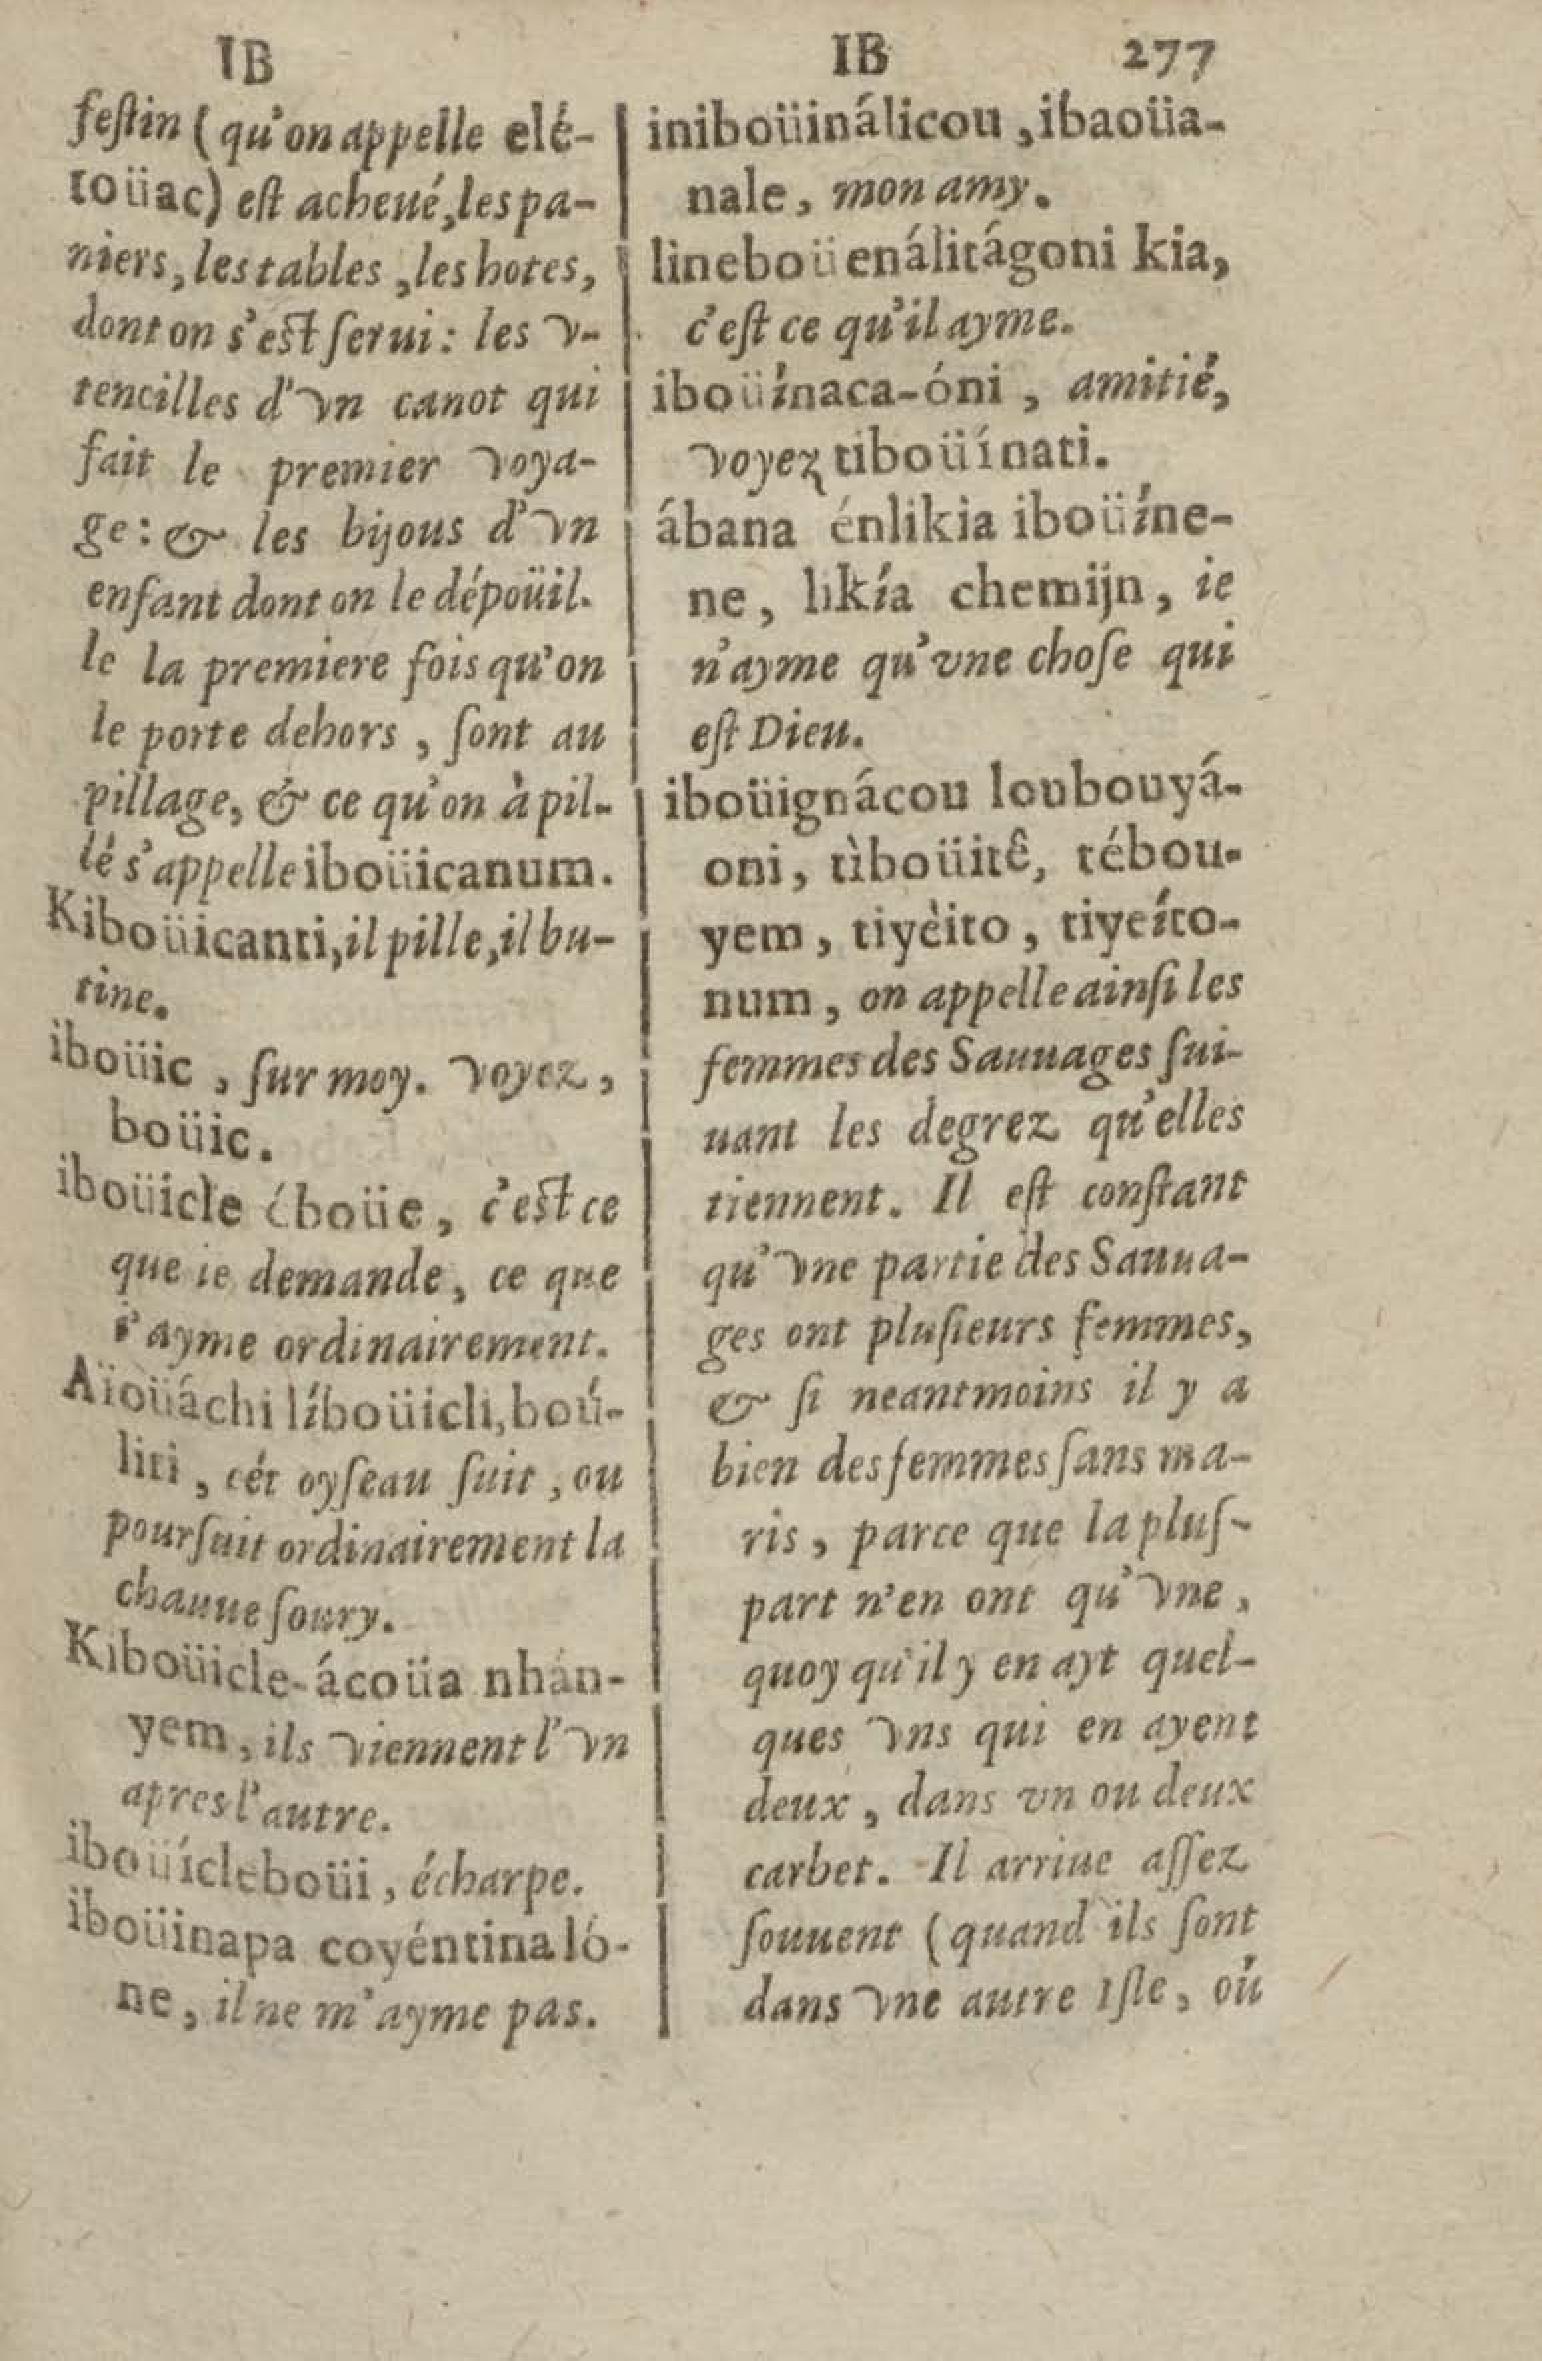 IB
feſtin (qu'on appelle elé-
toüac) eſt acheué, les pa-
niers, les tables, les hotes,
dont on s'eſt ſerui : les v-
tencilles d'vn canot qui
fait le premier voya-
ge : & les bijous d'vn
enfant dont on le dépoüil-
le la premiere fois qu'on
le porte dehors, ſont au
pillage, & ce qu'on à pil-
lé s'appelle iboüicanum.
Kiboüicanti, il pille, il bu-
tine.
iboüic, ſur moy. voyez,
boüic.
iboüicle éboüe, c'eſt ce
que ie demande, ce que
i'ayme ordinairement.
Aïoüáchi líboüicli, boú-
liti, cét oyſeau ſuit, ou
pourſuit ordinairement la
chauue ſoury.
Kiboüicle-ácoüa nhán-
yem, ils viennent l'vn
apres l'autre.
iboüícleboüi, écharpe.
iboüinapa coyéntina ló-
ne, il ne m'ayme pas.
IB 277
iniboüinálicou, ibaoüa-
nale, mon amy.
lineboüenálitágoni kia,
c'eſt ce qu'il ayme.
iboüínaca-óni, amitié,
voyez tiboüínati.
ábana énlikia iboüíne-
ne, likía chemijn, ie
n'ayme qu'vne choſe qui
eſt Dieu.
iboüignácou loubouyá-
oni, tìboüitê, tébou-
yem, tiyèito, tiyeíto-
num, on appelle ainſi les
femmes des Sauuages ſui-
uant les degrez qu'elles
tiennent. Il eſt conſtant
qu'vne partie des Sauua-
ges ont pluſieurs femmes,
& ſi neantmoins il y a
bien des femmes ſans ma-
ris, parce que la pluſ-
part n'en ont qu'vne,
quoy qu'il y en ayt quel-
ques vns qui en ayent
deux, dans vn ou deux
carbet. Il arriue aſſez
ſouuent (quand ils ſont
dans vne autre Iſle, où